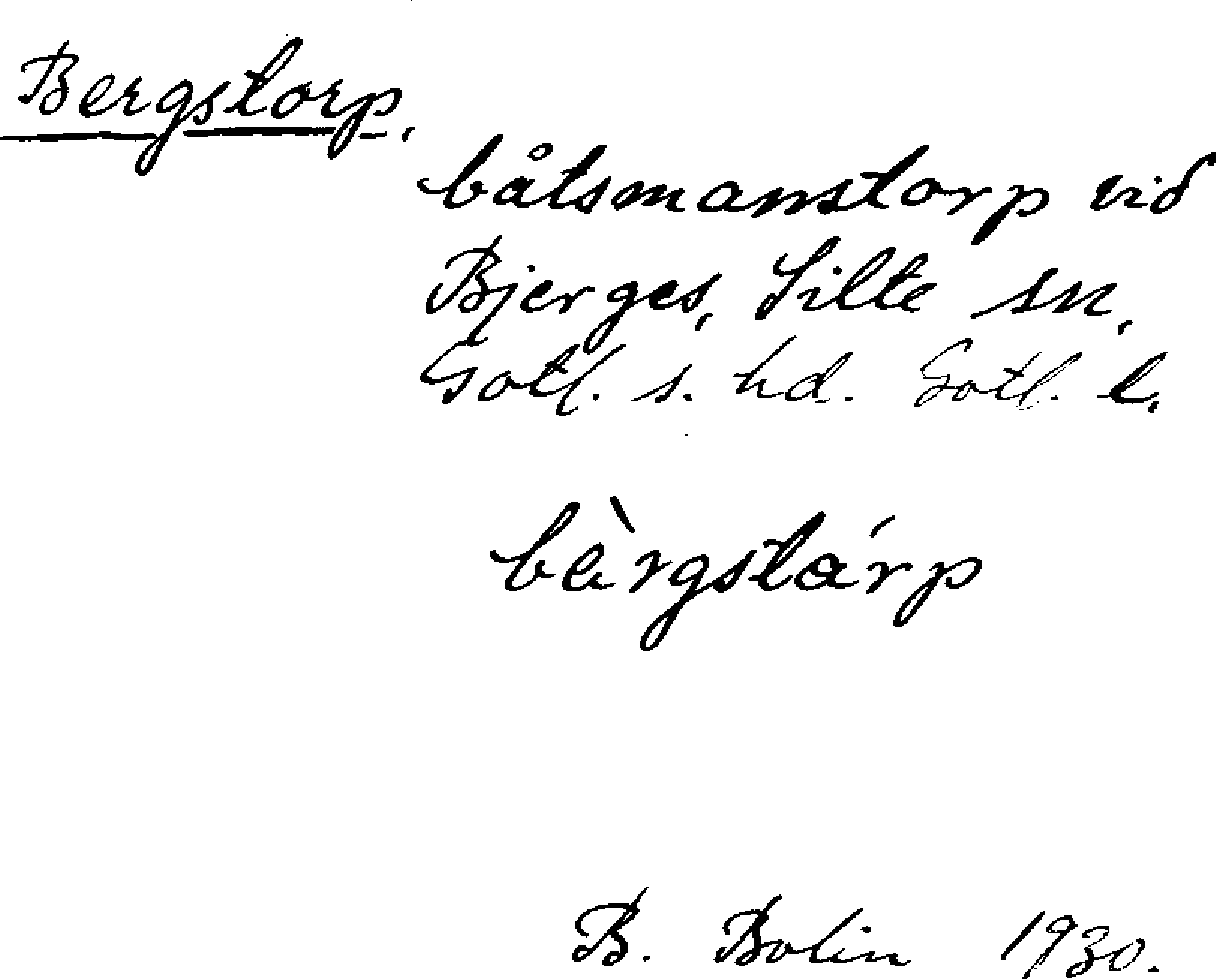 Bergstorp,
båtsmanstorp vid
Bjerges, Silte sn,
Gotl. s. hd. Gotl. l.
bèrgstárp
B. Bolin 1930.